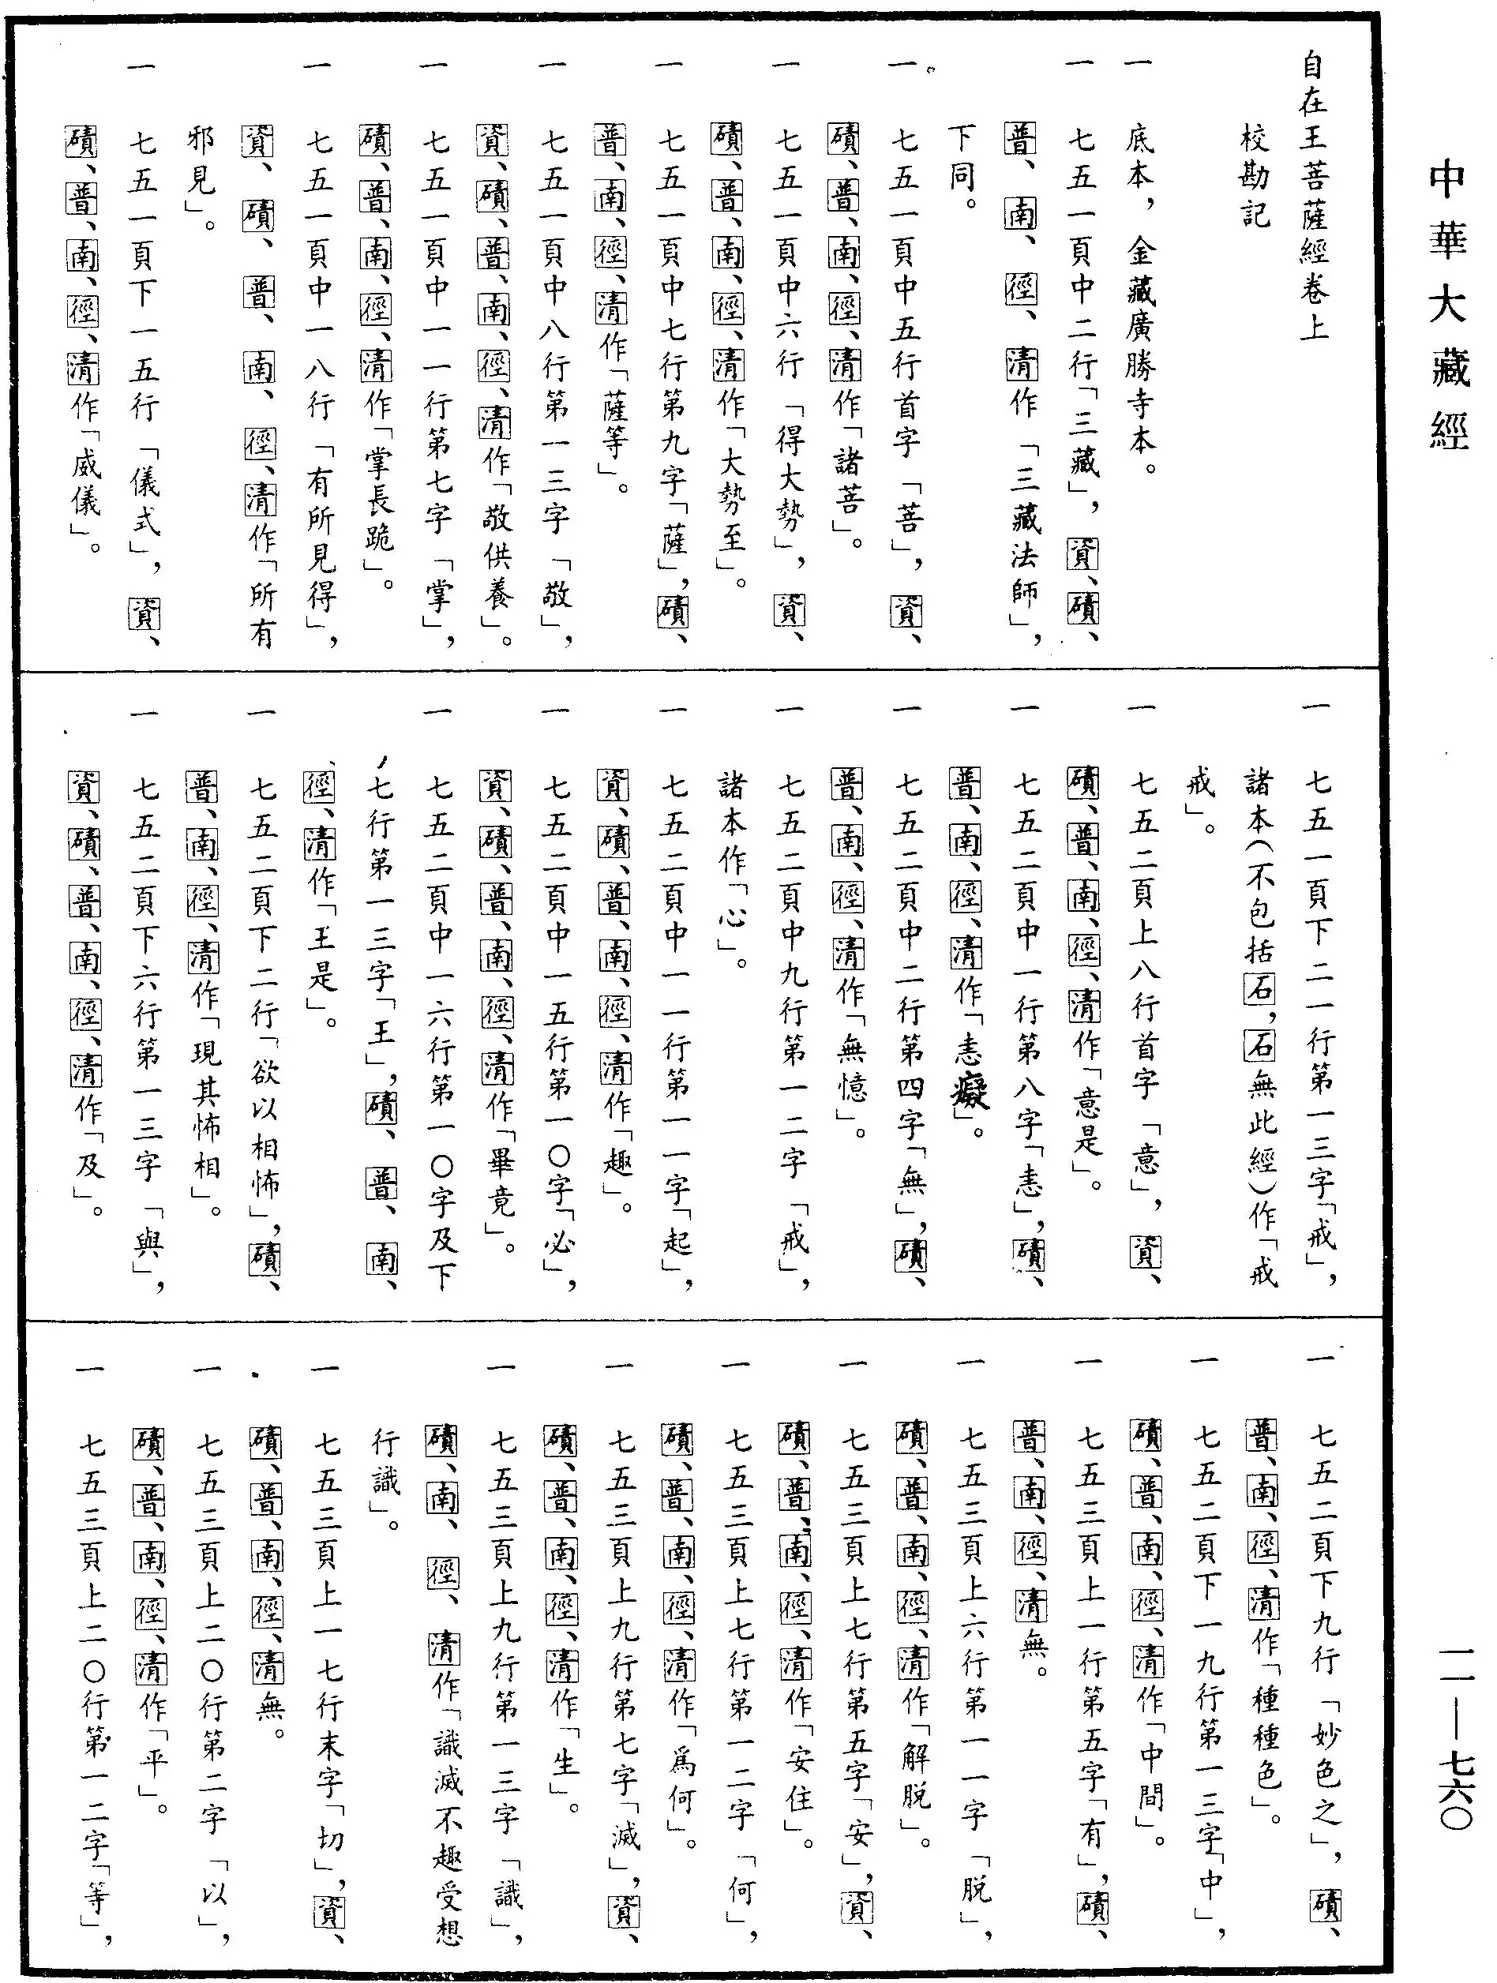 中華大藏經
一一—七六〇
自在王菩薩經卷上
校勘記
一　底本，金藏廣勝寺本。
一　七五一頁中二行「三藏」，資、磧、
普、南、徑、清作「三藏法師」，
下同。
一　七五一頁中五行首字「菩」，資、
磧、普、南、徑、清作「諸菩」。
一　七五一頁中六行「得大勢」，資、
磧、普、南、徑、清作「大勢至」。
一　七五一頁中七行第九字「薩」，磧、
普、南、徑、清作「薩等」。
一　七五一頁中八行第一三字「敬」，
資、磧、普、南、徑、清作「敬供養」。
一　七五一頁中一一行第七字「掌」，
磧、普、南、徑、清作「掌長跪」。
一　七五一頁中一八行「有所見得」，
資、磧、普、南、徑、清作「所有
邪見」。
一　七五一頁下一五行「儀式」，資、
磧、普、南、徑、清作「威儀」。
一　七五一頁下二一行第一三字「戒」，
諸本（不包括石，石無此經）作「戒
戒」。
一　七五二頁上八行首字「意」，資、
磧、普、南、徑、清作「意是」。
一　七五二頁中一行第八字「恚」，磧、
普、南、徑、清作「恚癡」。
一　七五二頁中二行第四字「無」，磧、
普、南、徑、清作「無憶」。
一　七五二頁中九行第一二字「戒」，
諸本作「心」。
一　七五二頁中一一行第一一字「起」，
資、磧、普、南、徑、清作「趣」。
一　七五二頁中一五行第一〇字「必」，
資、磧、普、南、徑、清作「畢竟」。
一　七五二頁中一六行第一〇字及下
七行第一三字「王」，磧、普、南、
徑、清作「王是」。
一　七五二頁下二行「欲以相怖」，磧、
普、南、徑、清作「現其怖相」。
一　七五二頁下六行第一三字「與」，
資、磧、普、南、徑、清作「及」。
一　七五二頁下九行「妙色之」，磧、
普、南、徑、清作「種種色」。
一　七五二頁下一九行第一三字「中」，
磧、普、南、徑、清作「中間」。
一　七五三頁上一行第五字「有」，磧、
普、南、徑、清無。
一　七五三頁上六行第一一字「脫」，
磧、普、南、徑、清作「解脫」。
一　七五三頁上七行第五字「安」，資、
磧、普、南、徑、清作「安住」。
一　七五三頁上七行第一二字「何」，
磧、普、南、徑、清作「爲何」。
一　七五三頁上九行第七字「滅」，資、
磧、普、南、徑、清作「生」。
一　七五三頁上九行第一三字「識」，
磧、南、徑、清作「識滅不趣受想
行識」。
一　七五三頁上一七行末字「切」，資、
磧、普、南、徑、清無。
一　七五三頁上二〇行第二字「以」，
磧、普、南、徑、清作「平」。
一　七五三頁上二〇行第一二字「等」，